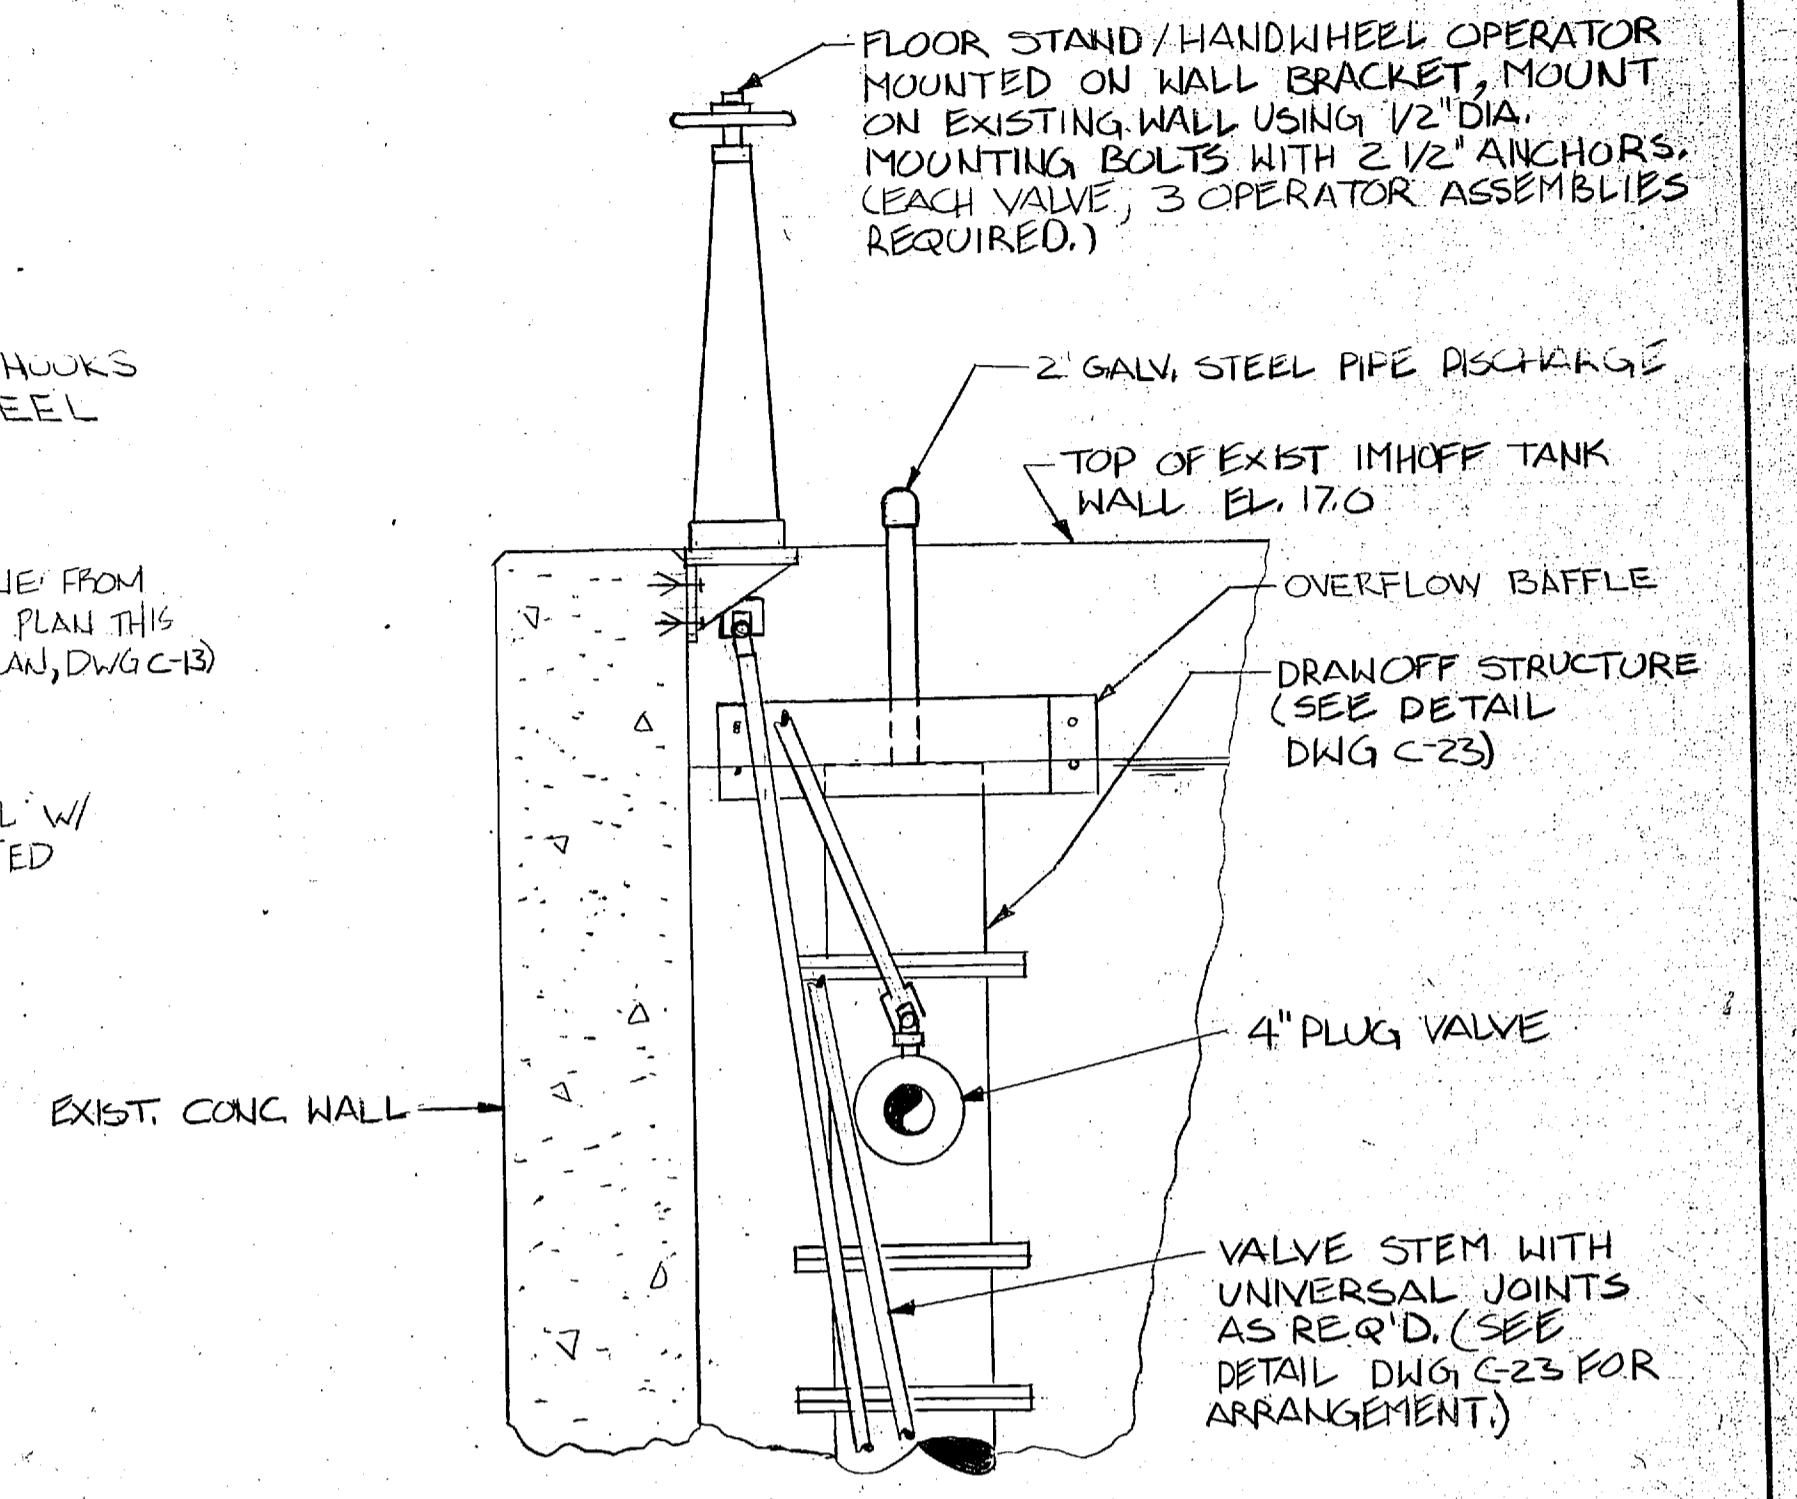 FLOOR STAND/HANDWHEEL OPERATOR
MOUNTED ON WALL BRACKET, MOUNT
ON EXISTING WALL USING 1/2" DIA.
MOUNTING BOLTS WITH 2 1/2" ANCHORS.
(EACH VALVE, 3 OPERATOR ASSEMBLIES
REQUIRED.)
HOOKS
EEL
2" GALV. STEEL PIPE DISCHARGE
TOP OF EXIST IMHOFF TANK
WALL EL. 17.0
FROM
PLAN THIS
AN, DWG C-13)
OVERFLOW BAFFLE
DRAWOFF STRUCTURE
(SEE DETAIL
DWG C-23)
L W/
ED
4" PLUG VALVE
EXIST. CONC WALL
VALVE STEM WITH
UNIVERSAL JOINTS
AS REQ'D. (SEE
DETAIL DWG C-23 FOR
ARRANGEMENT.)